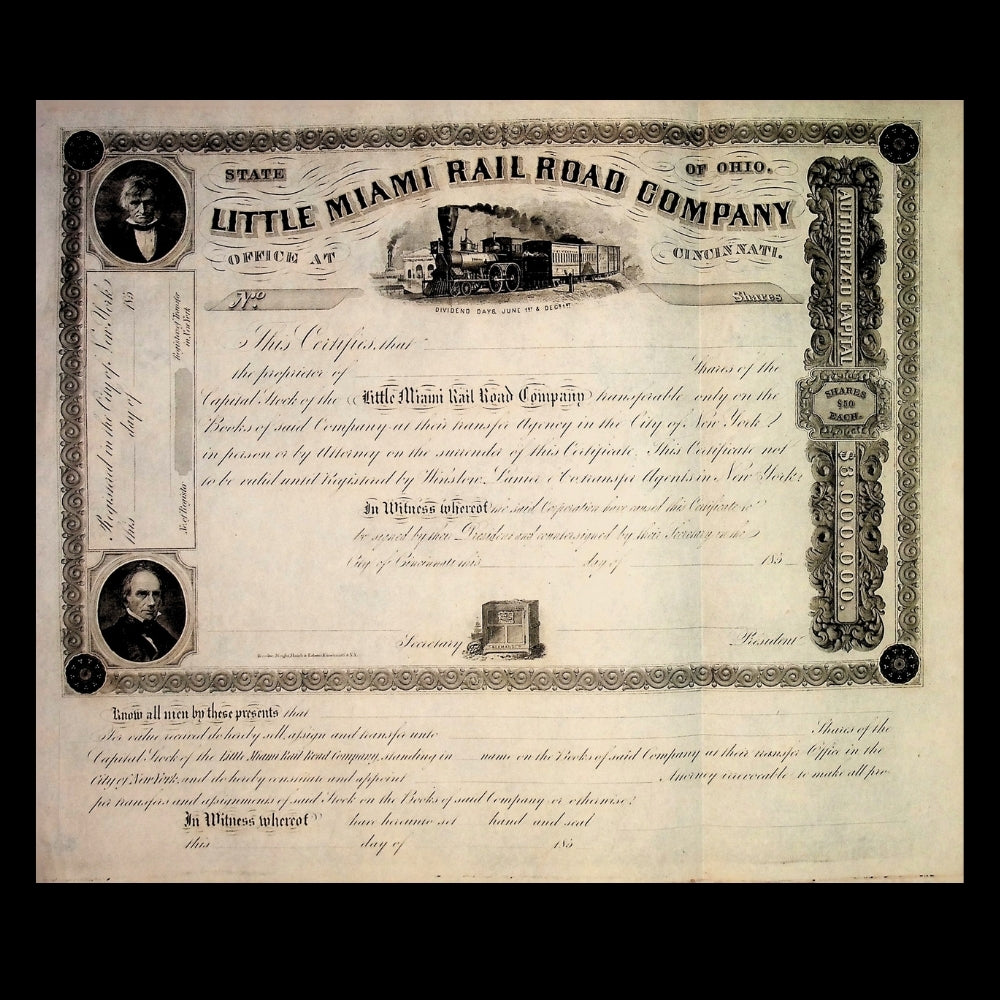 STATE OF OHIO.
LITTLE MIAMI RAIL ROAD COMPANY
OFFICE AT CINCINNATI.
No Shares
DIVIDEND DAYS, JUNE 1ST & DECR 1ST
This Certifies, that
the proprietor of Shares of the
Capital Stock of the Little Miami Rail Road Company transferable only on the
Books of said Company at their transfer Agency in the City of New York
in person or by Attorney on the surrender of this Certificate. This Certificate not
to be valid until registered by Winslow, Lanier & Co transfer Agents in New York.
In Witness whereof the said Corporation have caused this Certificate to
be signed by their President and countersigned by their Secretary in the
City of Cincinnati this day of 185
Secretary President
Registered in the City of New York
this day of 185
Registrar of Transfer
in New York
No of Register
AUTHORIZED CAPITAL
SHARES
$50
EACH.
$3,000,000.
Know all men by these presents that
For value received do hereby sell, assign and transfer unto Shares of the
Capital Stock of the Little Miami Rail Road Company, standing in name on the Books of said Company at their transfer Office in the
City of New York, and do hereby constitute and appoint Attorney irrevocable to make all pro-
per transfers and assignments of said Stock on the Books of said Company or otherwise.
In Witness whereof have hereunto set hand and seal
this day of 185